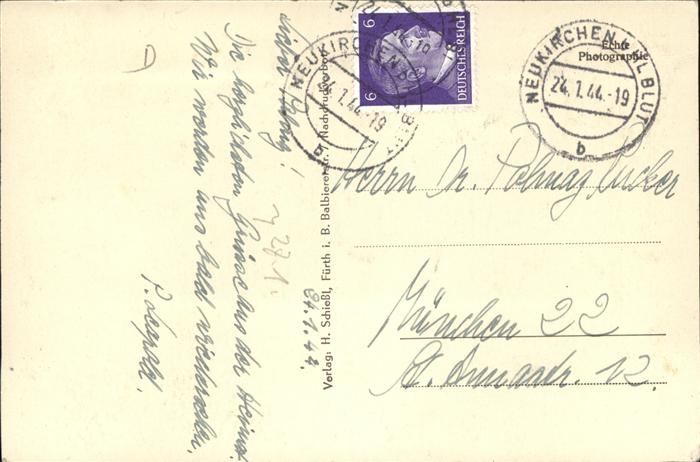 lieber
Die herzlichsten Grüsse aus der Heimat.
Wir werden uns bald wiedersehen.
P. Leopold.
24.1.44.
27.1.
Verlag: H. Schießl, Fürth i. B. Balbiererstr. / Nachdruck verboten
6 6
DEUTSCHES REICH
NEUKIRCHEN
24.1.44.-19
b
NEUKIRCHEN HL BLUT
24.1.44.-19
b
Echte
Photographie
Herrn Dr.
München 22
St. Annastr. 12.